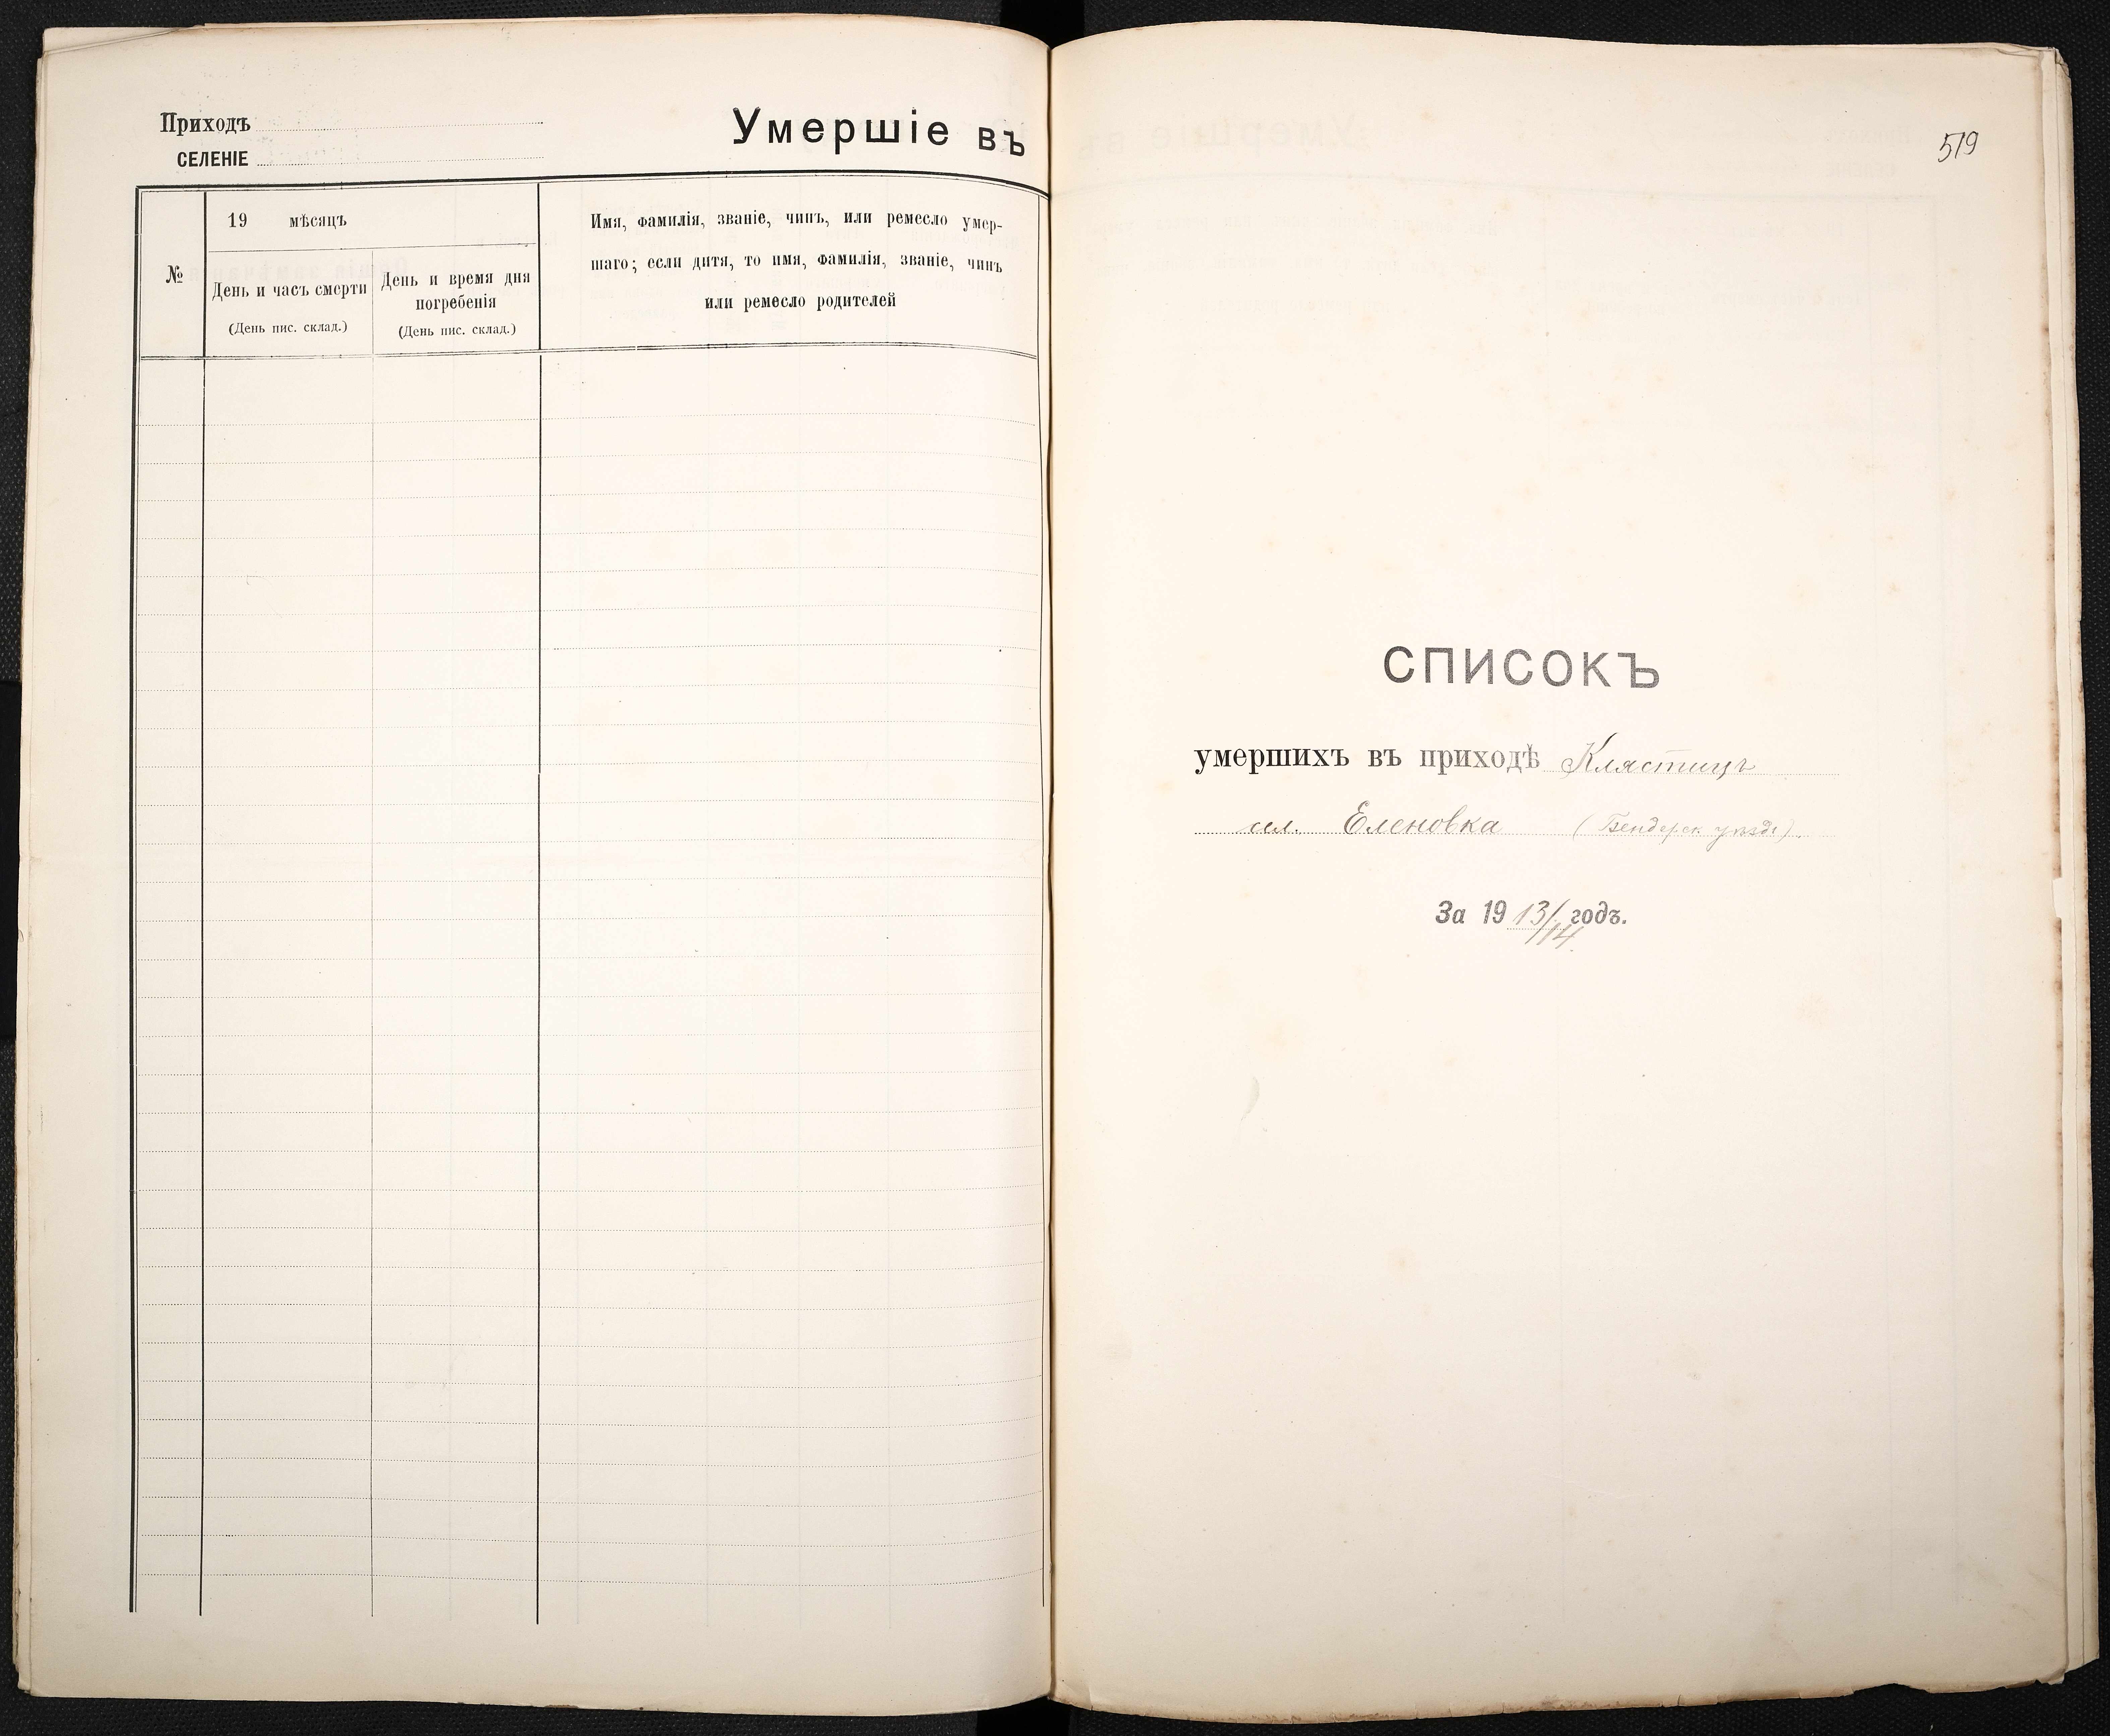 Приходъ
СЕЛЕНІЕ
Умершіе въ
№
19 мѣсяцъ
День и часъ смерти
(День пис. склад.)
День и время дня
погребенія
(День пис. склад.)
Имя, фамилія, званіе, чинъ, или ремесло умер-
шаго; если дитя, то имя, фамилія, званіе, чинъ
или ремесло родителей
519
СПИСОКЪ
умершихъ въ приходѣ Клястицъ
сел. Еленовка (Бендерск уѣздъ).
За 1913/14 годъ.